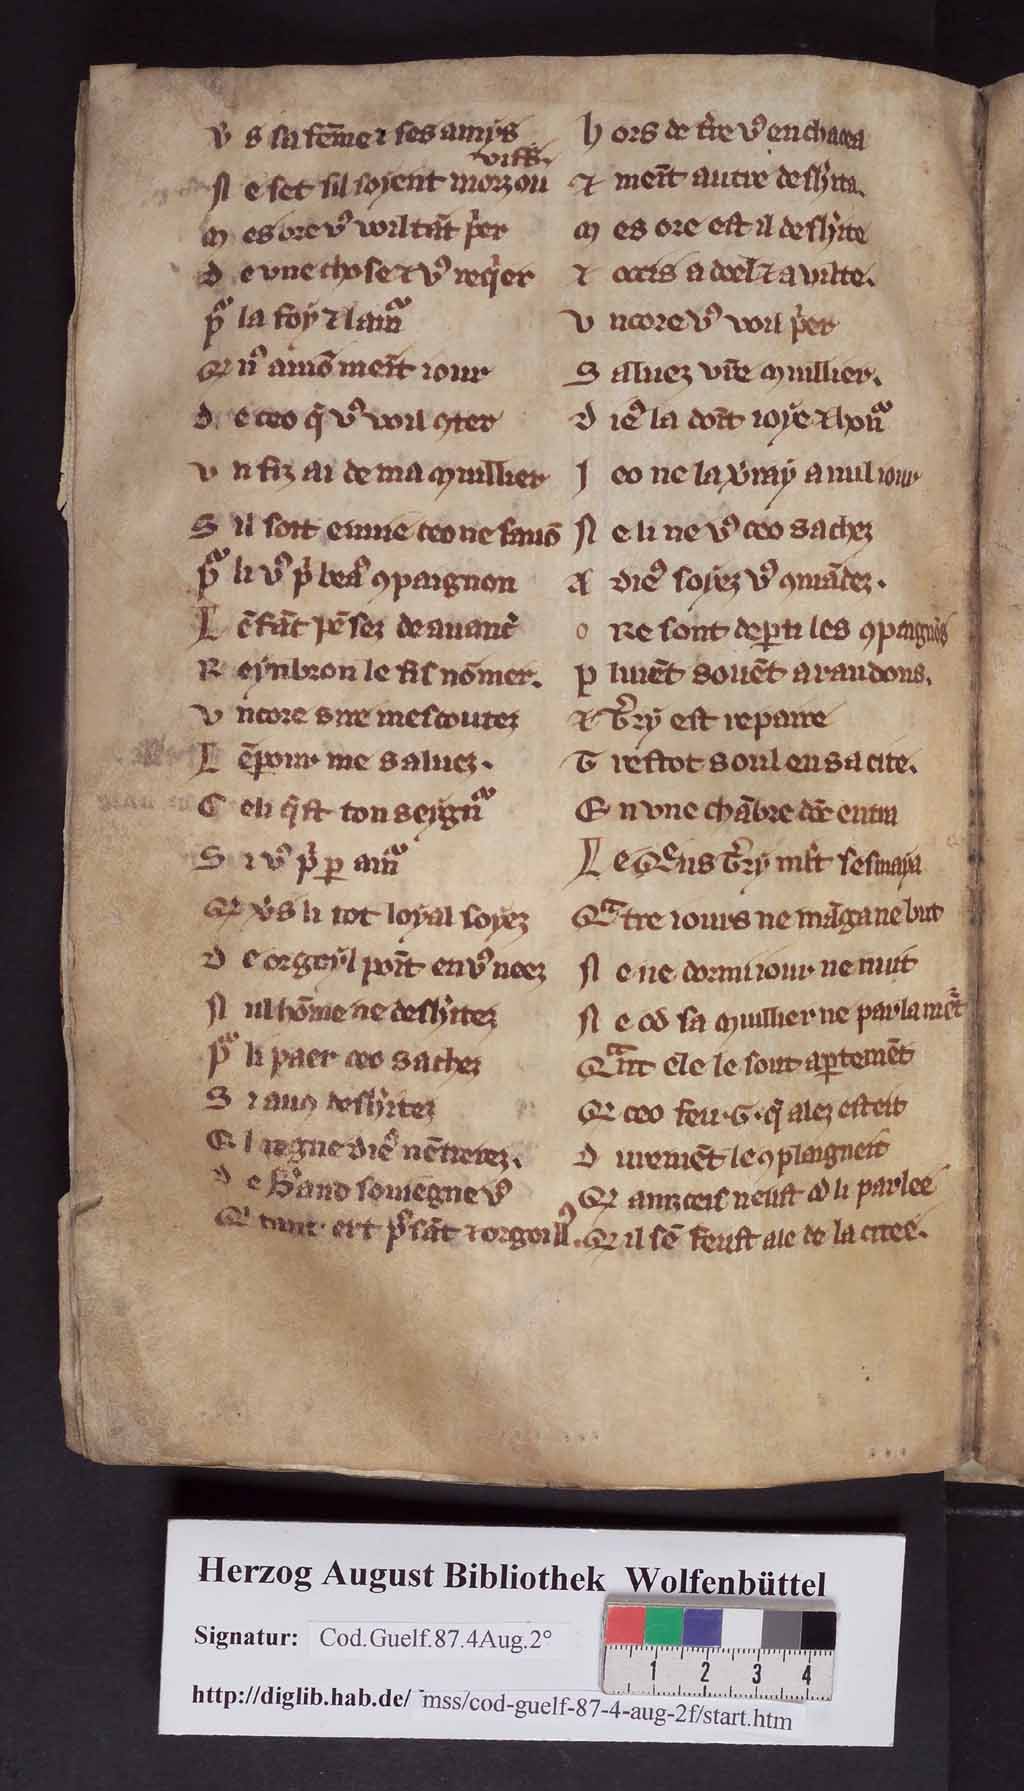 v̾s sa fẽme ⁊ ses amys
vifs.
N e set sil soyent morz ou
M es ore vꝰ voil tãt p̾er
D e vne chose ⁊ vꝰ req̾er
pᵃ la foy ⁊ lamᵃ
Q nꝰ amõ meīt iour
D e ceo q̃ vꝰ voil ꝯter
V n fiz ai de ma muillier
S il soit en vie ceo ne sauõ
pᵃ li vꝰ p̾ beaꝰ ꝯpaignon
L ẽfãt pẽsez de auanc̾
R eynbron le fis nõmer.
V ncore sire mescoutez
L ẽpour me saluez.
C eli q̃st ton seygnᵃ
S i vꝰ p̾ ꝑ amᵃ
Q v̾s li tot loyal soyez
D e orgoyl poīt en vꝰ neez
N ul hõme ne desh̾itez
pᵃ li paer ceo sachez
S i auꝯ desh̾itez
E l regne dieꝰ nẽtrerez.
D e h̾aud souiegne vꝰ
Q tant ert p̾sãt ⁊ orgoillꝰ.
H ors de t̾re vꝰ enchacea
⁊ meīt autre desh̾ita.
M es ore est il desh̾ite
⁊ occis a doel ⁊ a vilte.
V ncore vꝰ voil p̾er
S aluez vr̃e muillier.
D ieꝰ la doīt ioye ⁊ honᵃ
J eo ne la v̾ray a nul iour
N e li ne vꝰ ceo sachez
A dieꝰ soyez vꝰ ꝯmãdez.
O Re sont deꝑti les ꝯpaignõs
P lurẽt souẽt a randons.
⁊ T̾ry est repaire
T restot soul en sa cite.
E n vne chãbre dõc entra
L e Qͤns T̾ry ml̃t sesmaya
Qᵃtre iours ne mãga ne but
N e ne dormi iour ne nuit
N e od sa muillier ne parla mẽt
Qᵃnt ele le sout aꝑtemẽt
Q ceo feu .G. q̃ alez esteit
D uremẽt le ꝯplaigneit
Q aunceis neust od li parlee
Q il sẽ feust ale de la citee.
Herzog August Bibliothek Wolfenbüttel
Signatur: Cod.Guelf.87.4Aug.2°
1 2 3 4
http://diglib.hab.de/ mss/cod-guelf-87-4-aug-2f/start.htm